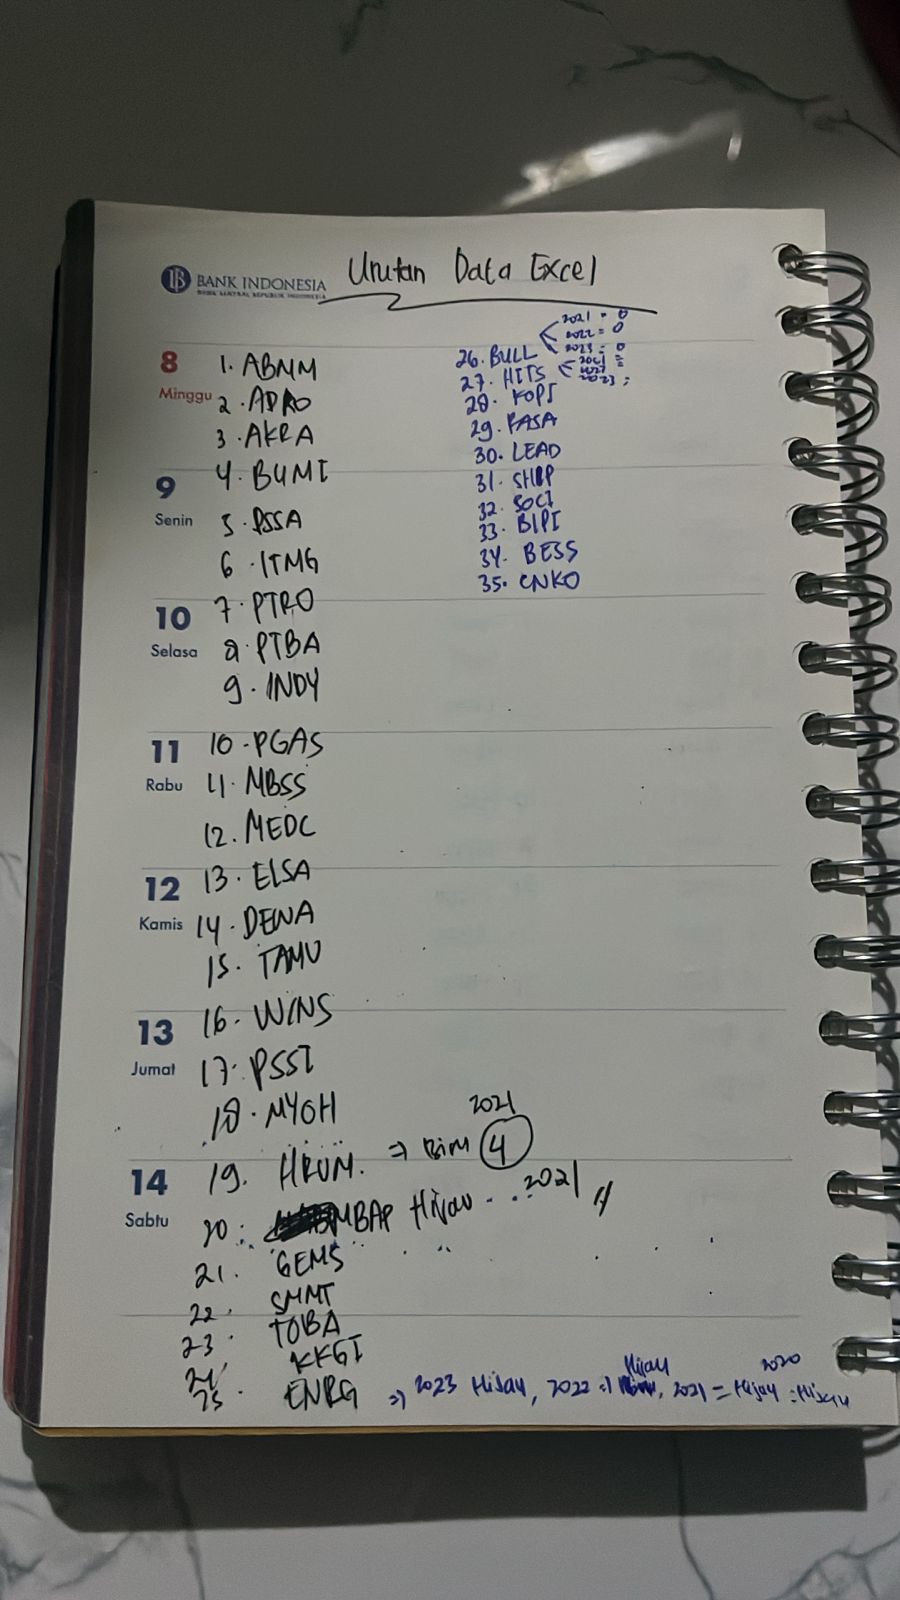 BANK INDONESIA
BANK SENTRAL REPUBLIK INDONESIA
Urutan Data Excel
8
Minggu
1. ABMM
2. ADRO
3. AKRA
9
Senin
4. BUMI
5. PSSA
6. ITMG
10
Selasa
7. PTRO
8. PTBA
9. INDY
11
Rabu
10. PGAS
11. MBSS
12. MEDC
12
Kamis
13. ELSA
14. DEWA
15. TAMU
13
Jumat
16. WINS
17. PSSI
18. MYOH
14
Sabtu
19. HRUM. => Biru 4 2021
20. MBAP Hijau ... 2021 //
21. GEMS
22. SMMT
23. TOBA
24. KKGI
25. ENRG => 2023 Hijau, 2022 => Hijau, 2021 = Hijau 2020 = Hijau
26. BULL 2021 = 0
2022 = 0
2023 = 0
27. HITS 2021 =
2022
2023 =
28. KOPI
29. RASA
30. LEAD
31. SHIP
32. SOCI
33. BIPI
34. BESS
35. CNKO